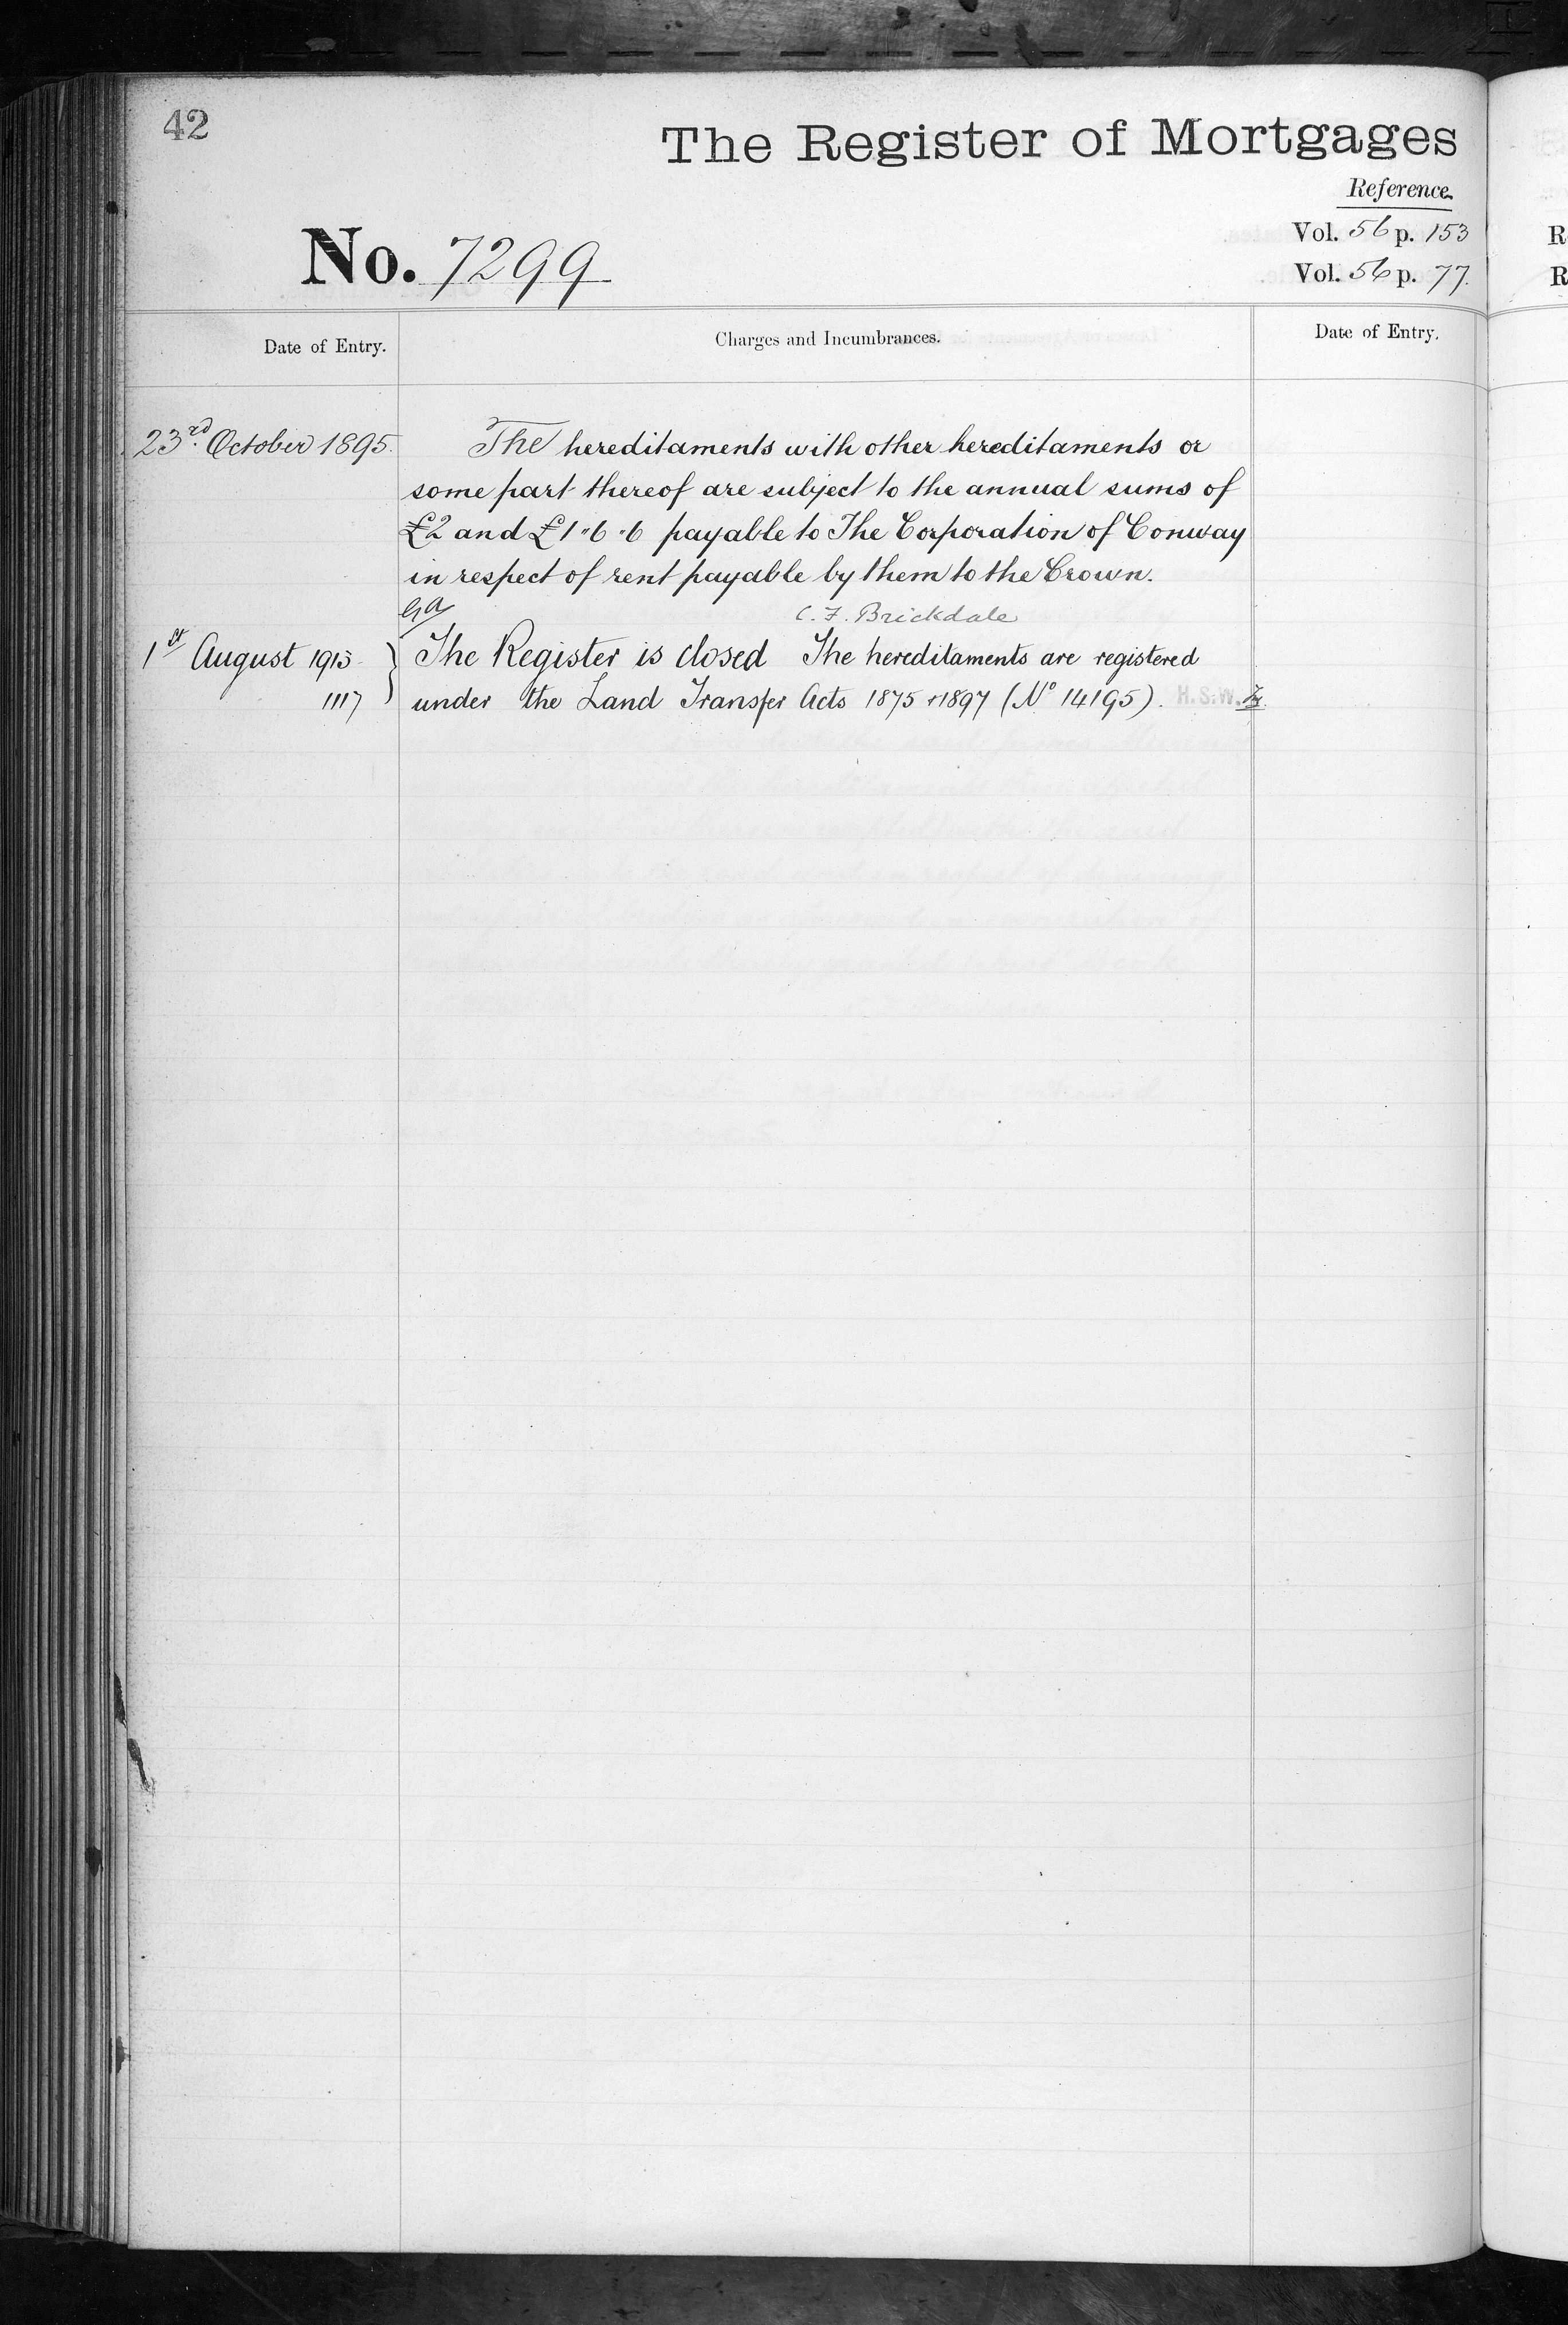 42
The Register of Mortgages
Reference.
No. 7299
Vol. 56 p. 153
Vol. 56 p. 77.
Date of Entry.
Charges and Incumbrances.
Date of Entry.
23rd October 1895.
The hereditaments with other hereditaments or
some part thereof are subject to the annual sums of
£2 and £1"6"6 payable to The Corporation of Conway
in respect of rent payable by them to the Crown.
C. F. Brickdale
1st August 1913
The Register is closed The hereditaments are registered
1117
under the Land Transfer Acts 1875 + 1897 (No 14195). H.S.W.
R
R